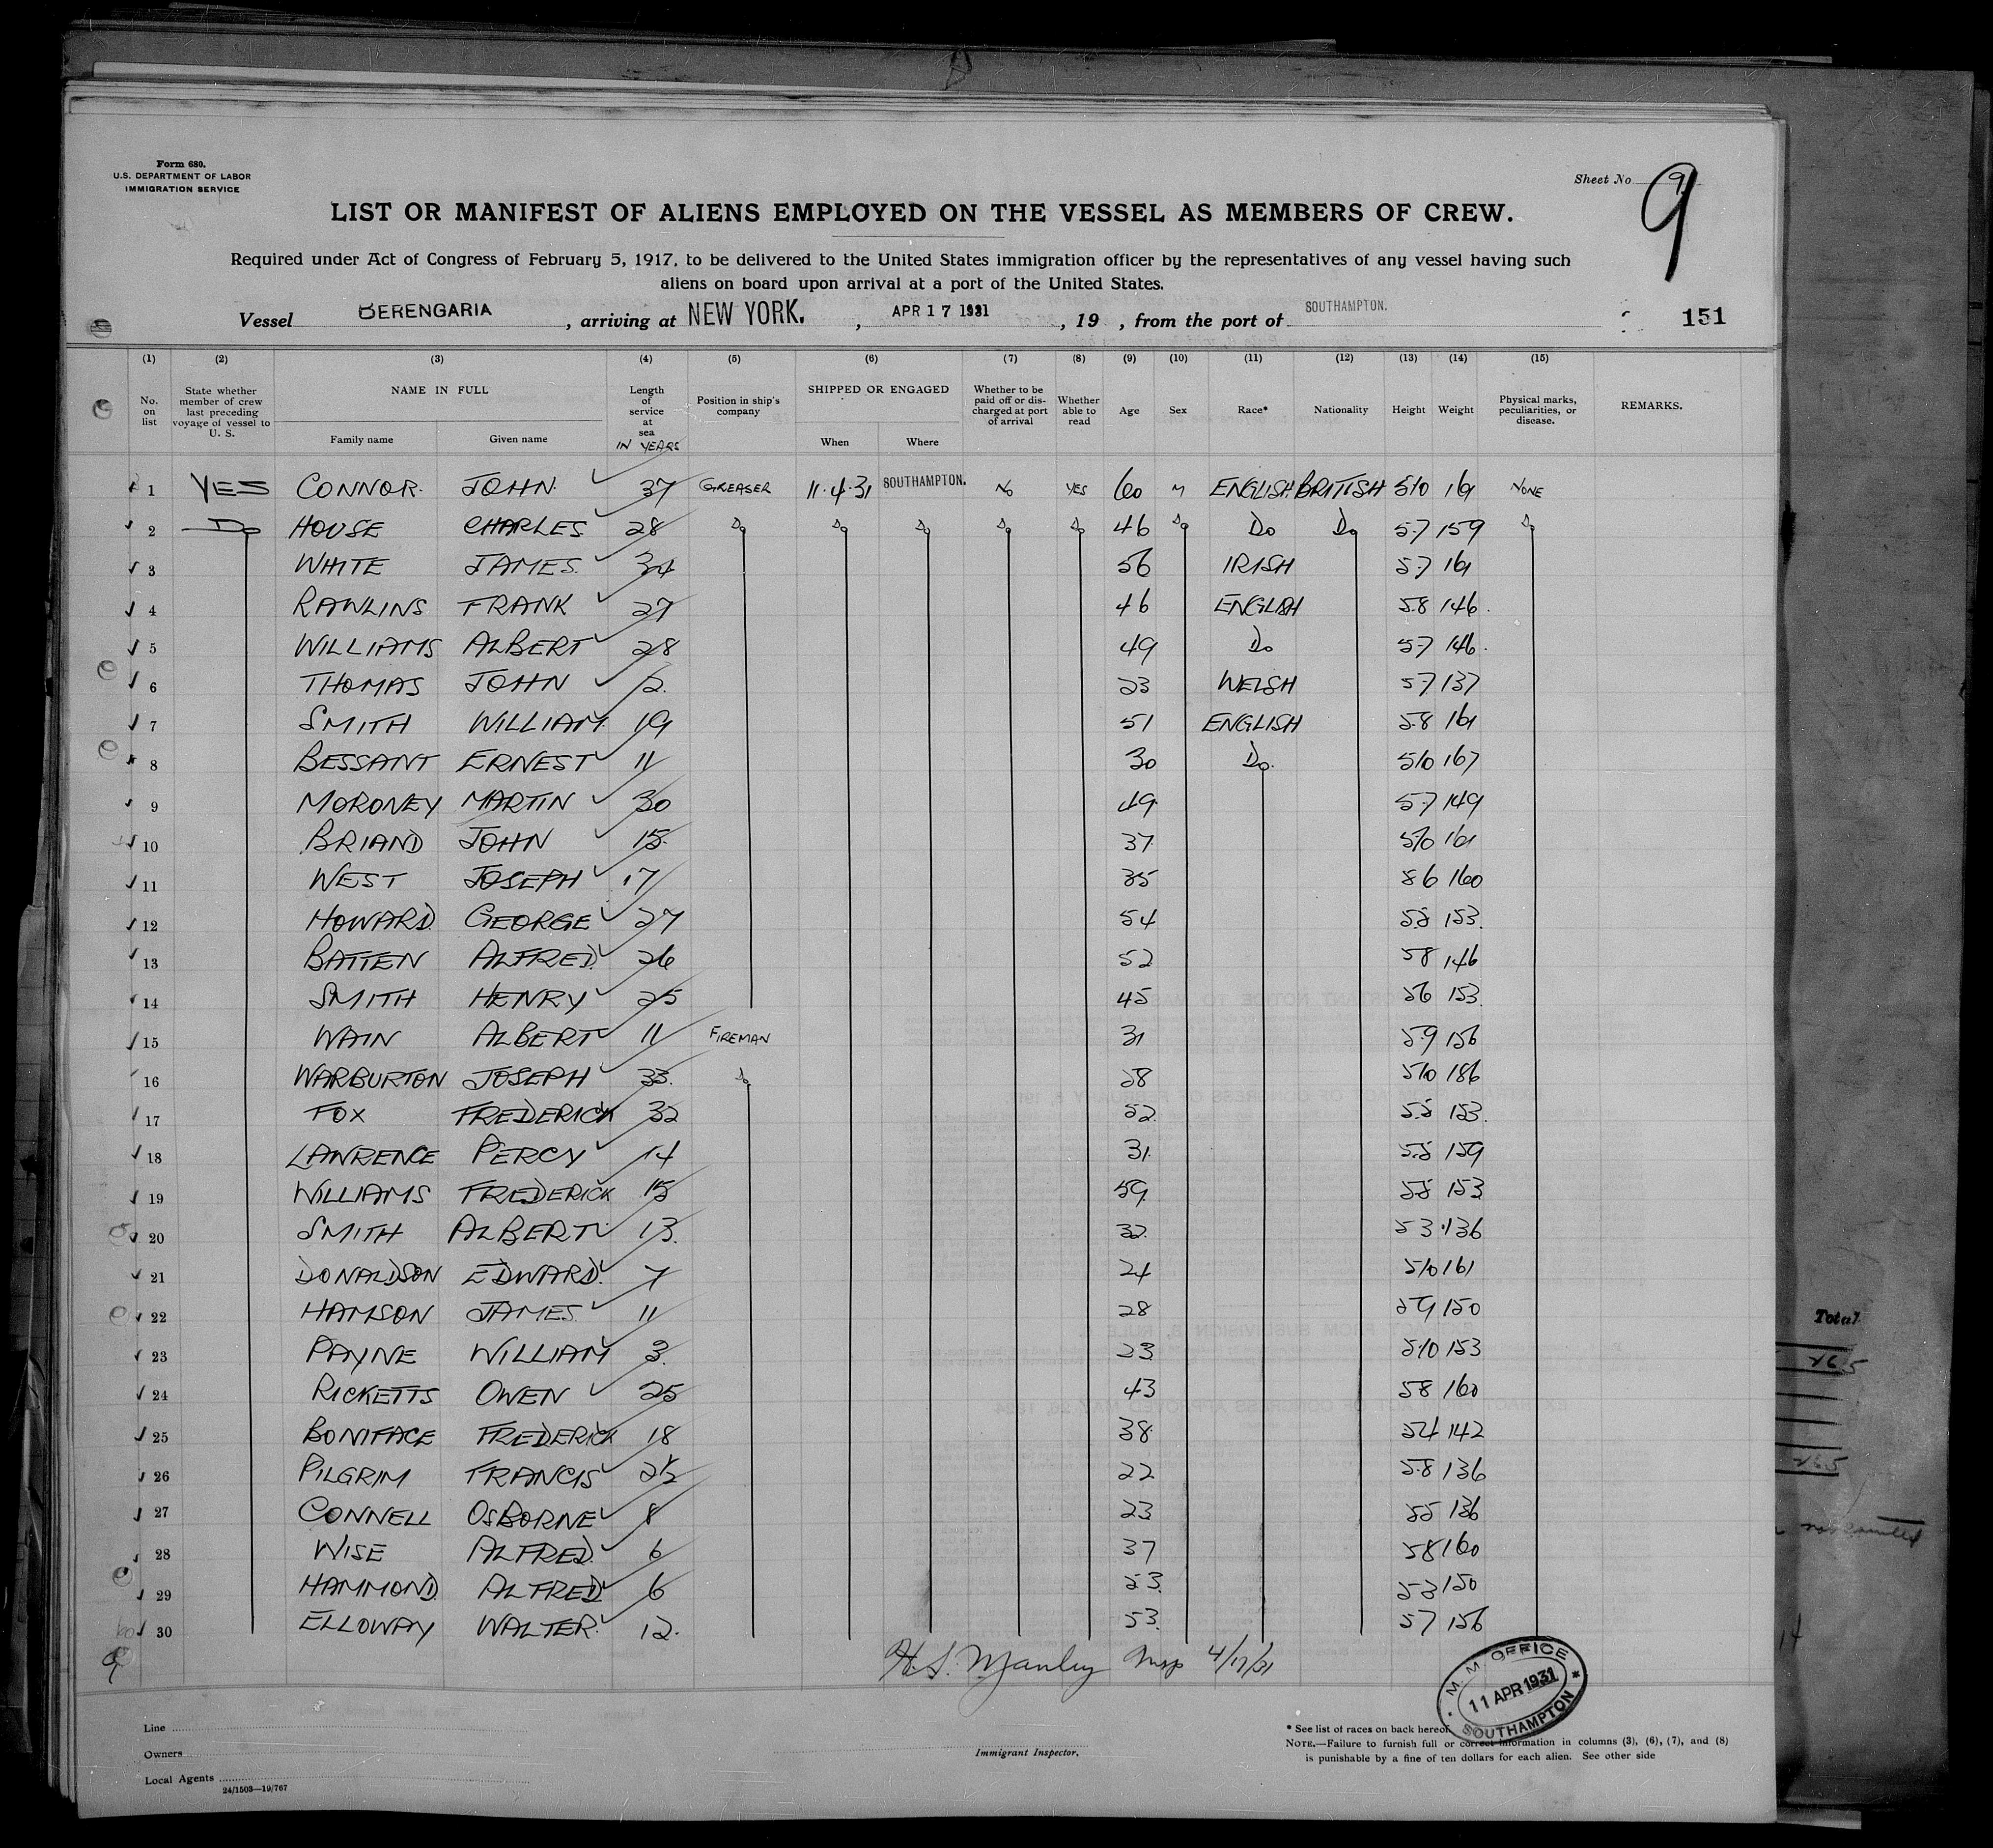 Form 680.
U.S. DEPARTMENT OF LABOR
IMMIGRATION SERVICE
Sheet No. 9
9
LIST OR MANIFEST OF ALIENS EMPLOYED ON THE VESSEL AS MEMBERS OF CREW.
Required under Act of Congress of February 5, 1917, to be delivered to the United States immigration officer by the representatives of any vessel having such
aliens on board upon arrival at a port of the United States.
Vessel BERENGARIA, arriving at NEW YORK., APR 17 1931, 19 , from the port of SOUTHAMPTON. 151
(1) (2) (3) (4) (5) (6) (7) (8) (9) (10) (11) (12) (13) (14) (15)
No. on list State whether member of crew last preceding voyage of vessel to U. S. NAME IN FULL Family name Given name Length of service at sea IN YEARS Position in ship's company SHIPPED OR ENGAGED When Where Whether to be paid off or discharged at port of arrival Whether able to read Age Sex Race* Nationality Height Weight Physical marks, peculiarities, or disease. REMARKS.
1 YES CONNOR. JOHN. 37 GREASER 11.4.31 SOUTHAMPTON. NO YES 60 M ENGLISH BRITISH 5/10 161 NONE
2 Do HOUSE CHARLES 28 Do Do Do Do Do 46 Do Do Do 5.7 159 Do
3 WHITE JAMES. 34 56 IRISH 5.7 161
4 RAWLINS FRANK 27 46 ENGLISH 5.8 146.
5 WILLIAMS ALBERT 28 49 Do 5.7 146.
6 THOMAS JOHN 2. 23 WELSH 5.7 137
7 SMITH WILLIAM 19 51 ENGLISH 5.8 161
8 BESSANT ERNEST 11 30 Do. 5/10 167
9 MORONEY MARTIN 30 49 5.7 149
10 BRIAND JOHN 15. 37 5/10 161
11 WEST JOSEPH 17 35 56 160
12 HOWARD. GEORGE 27 54 5.5 153.
13 BATTEN ALFRED. 26 52 58 146
14 SMITH HENRY 25 45 56 153.
15 WAIN ALBERT 11 FIREMAN 31 5.9 156
16 WARBURTON JOSEPH 33. Do 58 5/10 186
17 FOX FREDERICK 32 52. 5.5 153.
18 LAWRENCE PERCY 14 31. 5.5 159
19 WILLIAMS FREDERICK 15 59. 55 153
20 SMITH ALBERT 13. 32. 53 136
21 DONALDSON EDWARD. 7 24 5/10 161
22 HAMSON JAMES 11 28 59 150
23 PAYNE WILLIAM 3. 23 5/10 153
24 RICKETTS OWEN 25 43 58 160
25 BONIFACE FREDERICK 18 38 54 142
26 PILGRIM FRANCIS 2½ 22 5.8 136
27 CONNELL OSBORNE 8 23 55 136
28 WISE ALFRED. 6 37 58 160
29 HAMMOND. ALFRED 6 53. 53 150
30 ELLOWAY WALTER. 12. 53. 57 156
9
H.S. Manley Insp 4/17/31
M. M. OFFICE
11 APR 1931
SOUTHAMPTON
Line
Owners
Local Agents
24/1503—19/767
Immigrant Inspector.
* See list of races on back hereof.
NOTE.—Failure to furnish full or correct information in columns (3), (6), (7), and (8)
is punishable by a fine of ten dollars for each alien. See other side
Total